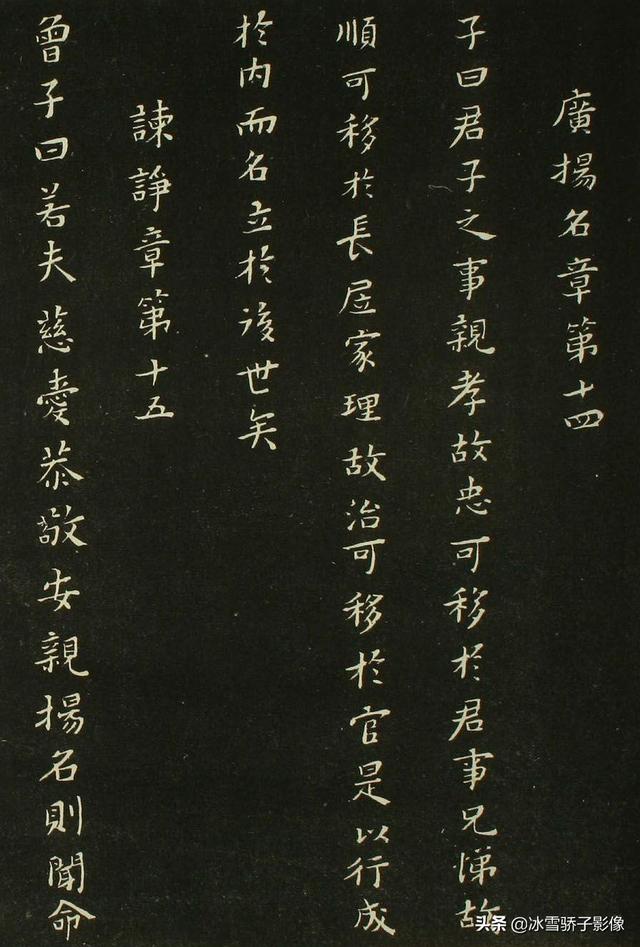 廣揚名章第十四
子曰君子之事親孝故忠可移於君事兄悌故
順可移於長居家理故治可移於官是以行成
於内而名立於後世矣
諫諍章第十五
曾子曰若夫慈愛恭敬安親揚名則聞命
头条 @冰雪骄子影像